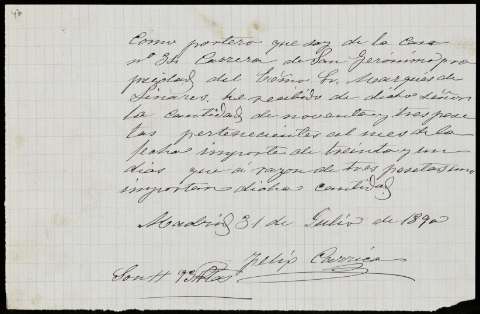 Como portero que soy de la casa
nº 34 Carrera de San Gerónimo pro
piedad del Exmo Sr Marqués de
Linares, he recibido de dicho señor
la cantidad de noventa y tres pese
tas pertenecientes al mes de la
fecha importe de treinta y un
dias que a razon de tres pesetas uno
importan dicha cantidad
Madrid 31 de Julio de 1890
Felix Carrica
Son # 93 Ptas